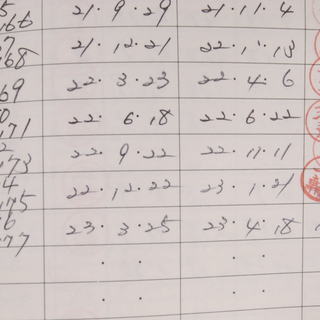 166 21.9.29 21.11.4
168 21.12.21 22.1.13
169 22.3.23 22.4.6
171 22.6.18 22.6.22
173 22.9.22 22.11.11
175 22.12.22 23.1.21
177 23.3.25 23.4.18
. . . .
. . . .